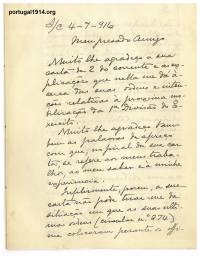 portugal1914.org
S/C 4-7-916
Meu presado Amigo
Muito lhe agradeço a sua
carta de 2 do corrente e as ex-
plicações que nella me dá á-
cerca das suas ordens e inten-
ções relativas á proxima mo-
bilisação da 1ª Divisão do E-
xercito.
Muito lhe agradeço tam-
bem as palavras de apreço
com que, no final da sua car-
ta, se refere ao meu traba-
lho, ao meu saber e á minha
experiencia.
Infelizmente, porem, a sua
carta não pode tirar-me da
situação em que as suas ulti-
mas ordens (circular nº 874)
me colocaram perante os ofi-